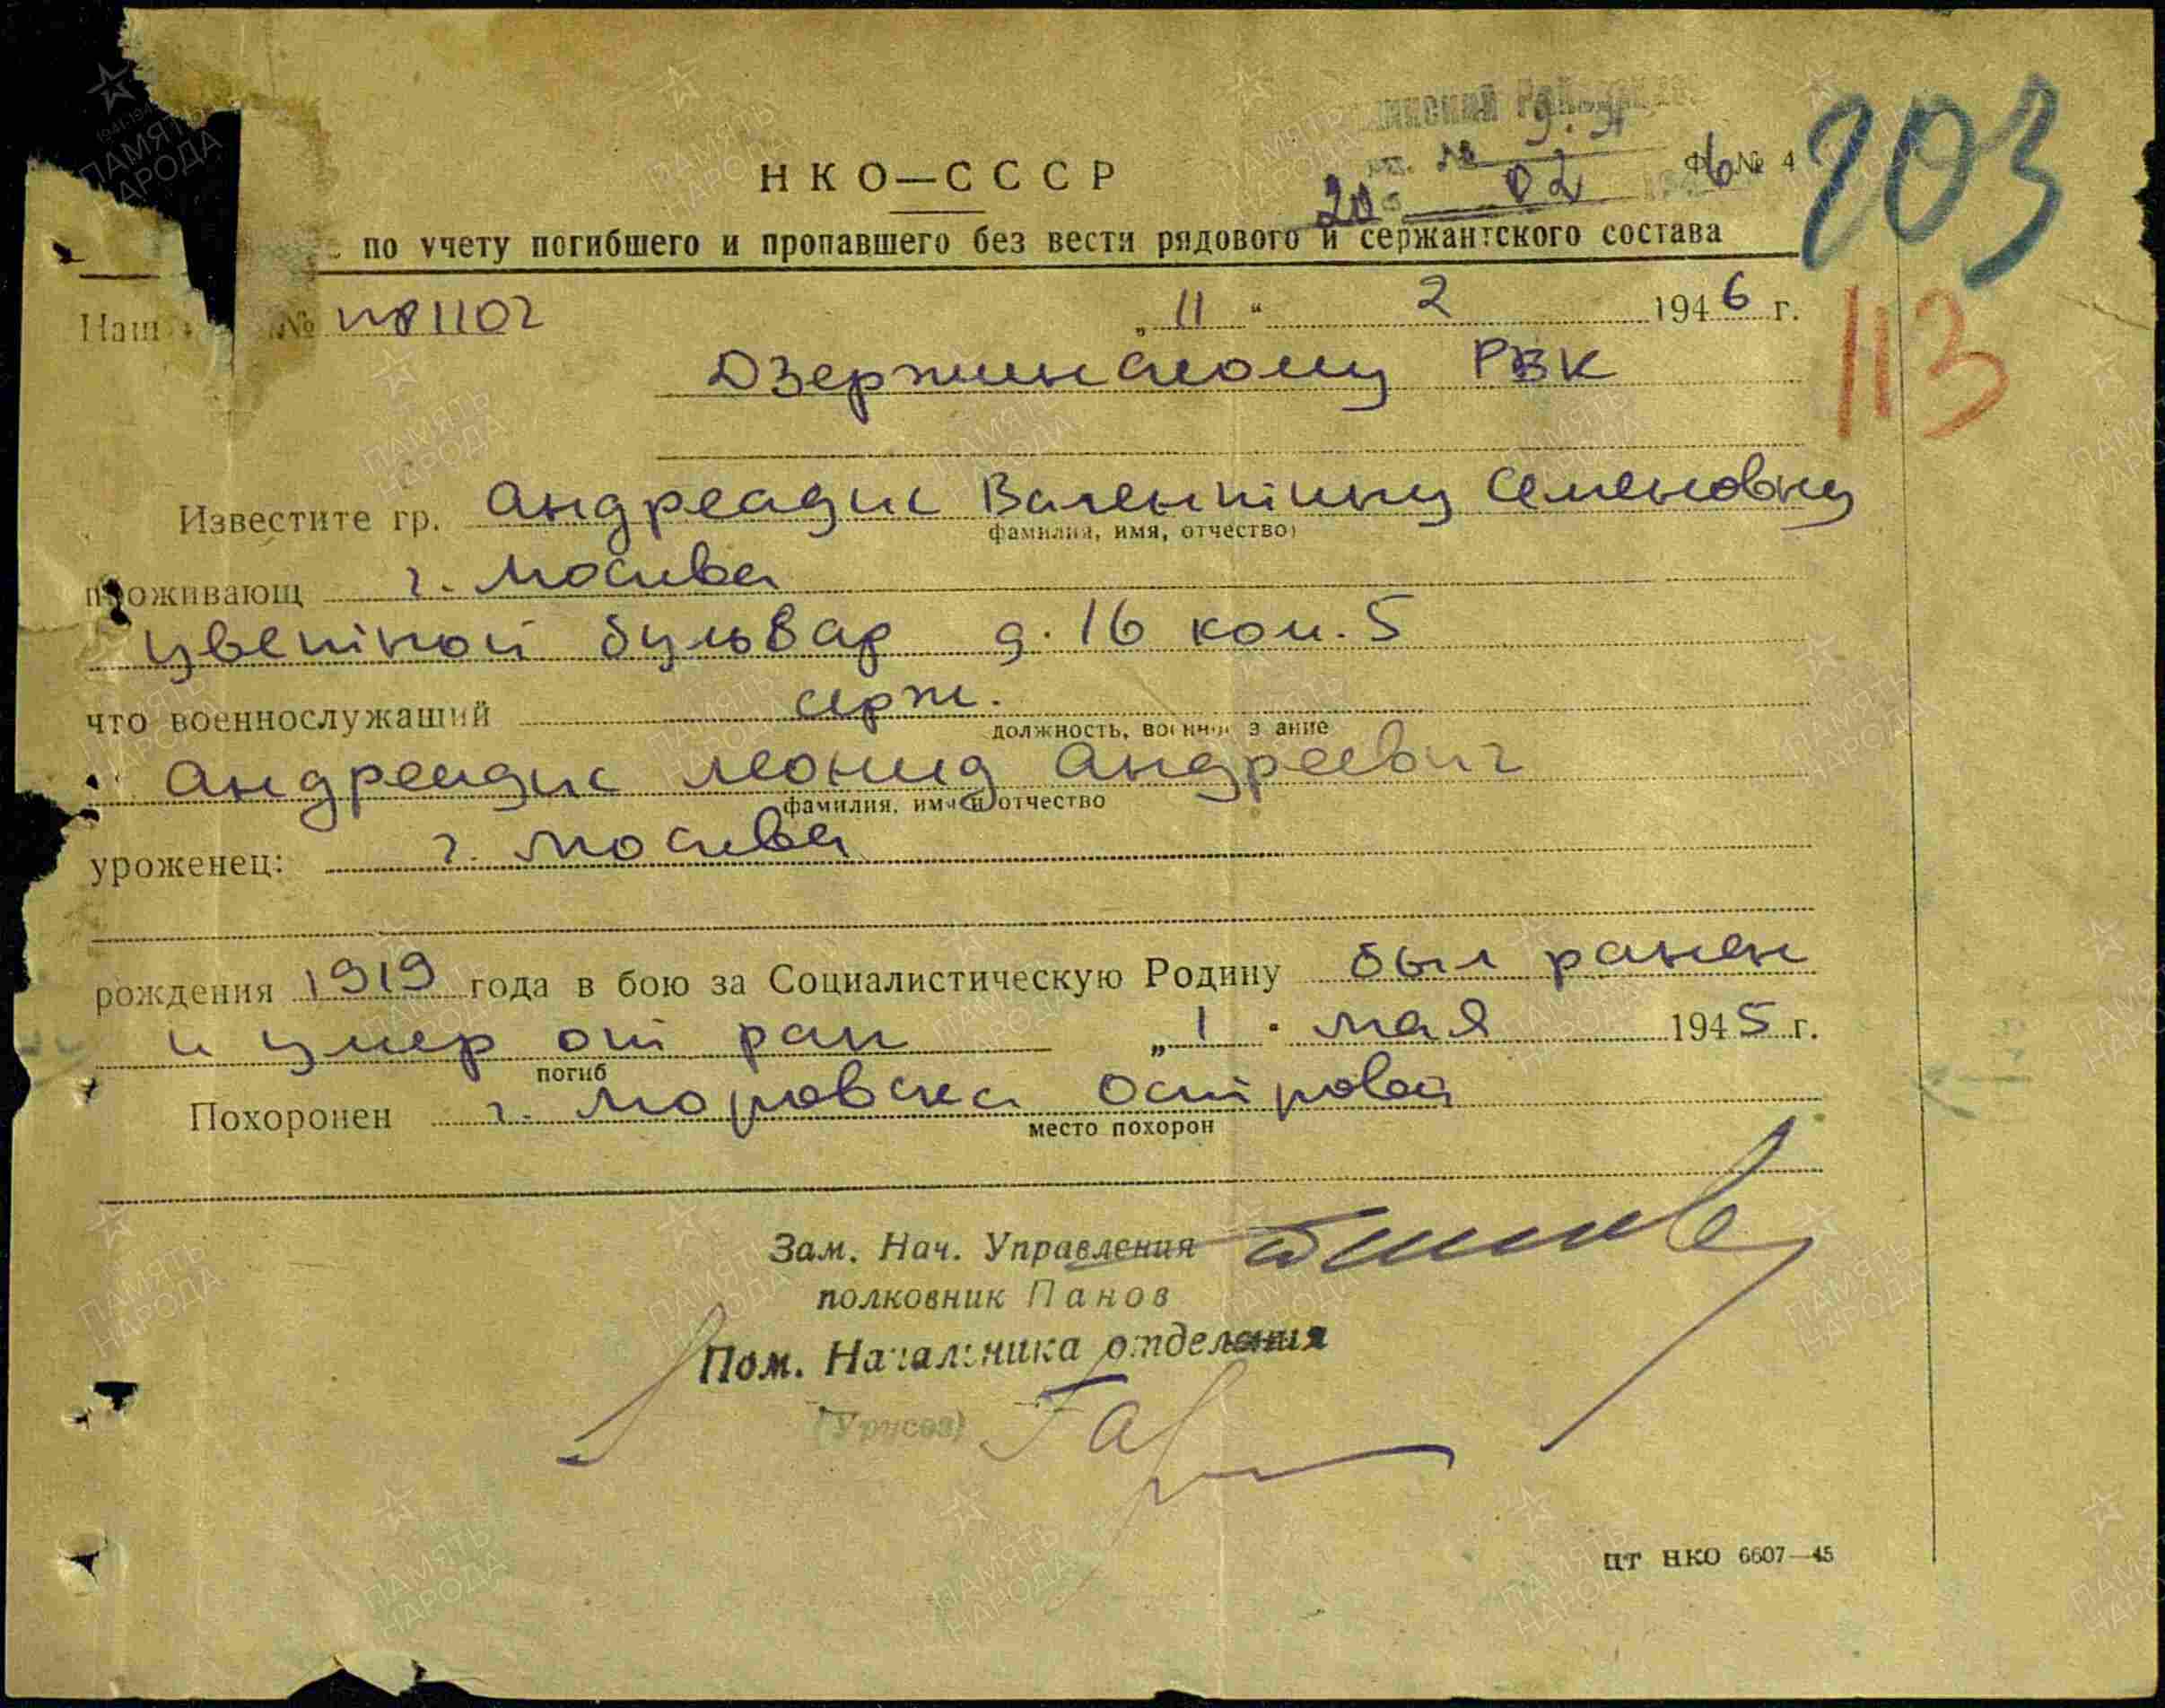 203
НКО—СССР
Ф № 4
20 02 6
по учету погибшего и пропавшего без вести рядового и сержантского состава
113
Наш № 1102 „11“ 2 1946 г.
Дзержинскому РВК
Известите гр. Андреадис Валентину Семеновну
фамилия, имя, отчество
проживающ г. Москва
Цветной бульвар д. 16 ком. 5
что военнослужащий серж.
должность, военное звание
Андреадис Леонид Андреевич
фамилия, имя и отчество
уроженец: г. Москва
рождения 1919 года в бою за Социалистическую Родину был ранен
и умер от ран „1“ мая 1945 г.
погиб
Похоронен г. Моровска Острова
место похорон
Зам. Нач. Управления
полковник Панов
Пом. Начальника отделения
(Урусов)
ЦТ НКО 6607—45
ПАМЯТЬ НАРОДА